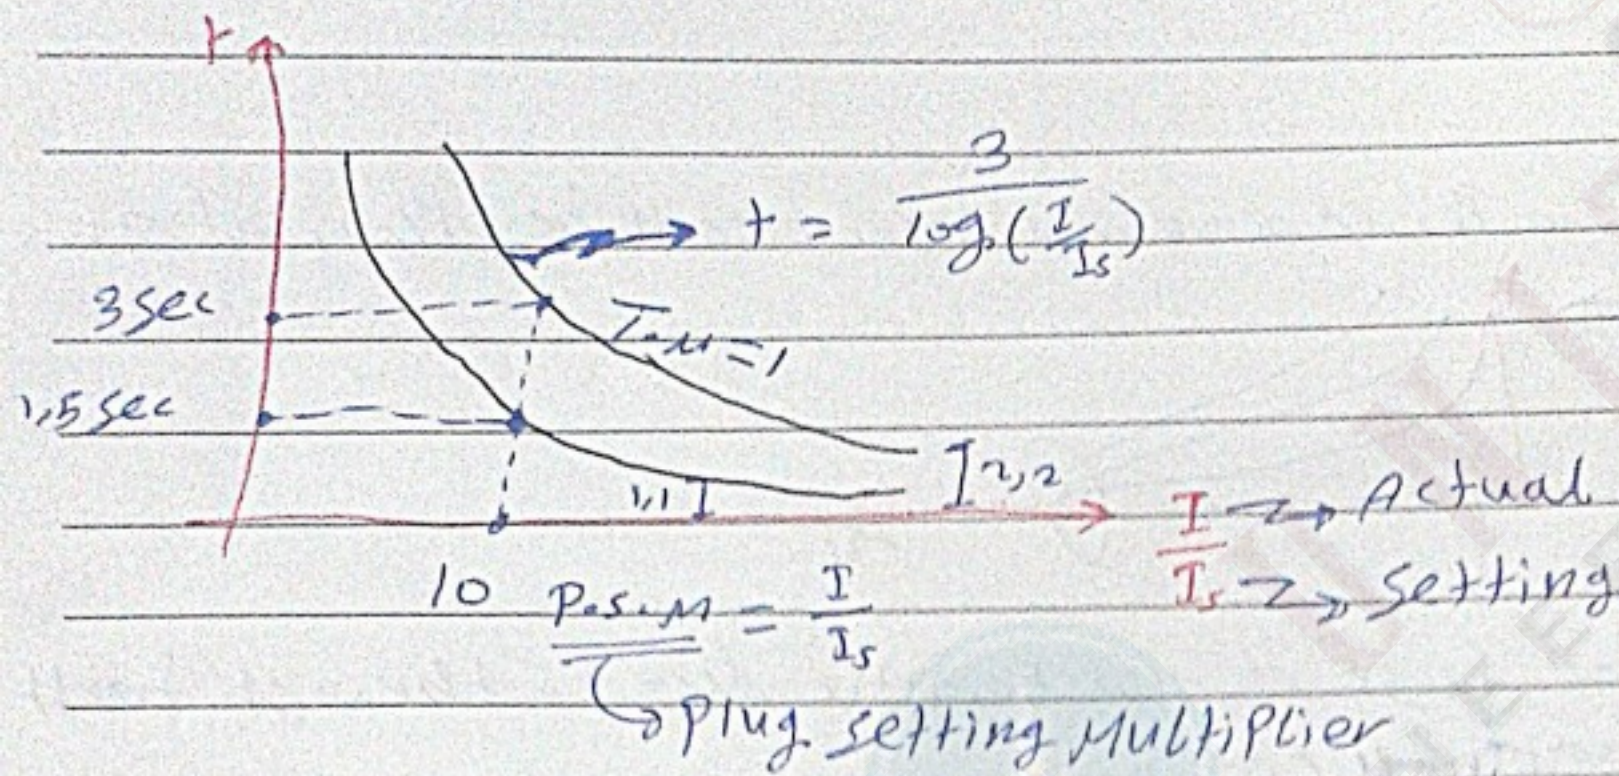 t
t = 3 / log(I/Is)
3 sec
T.M = 1
1,5 sec
2,2
1,1
I → Actual
Is → setting
10 P.S.M = I/Is
Plug setting Multiplier